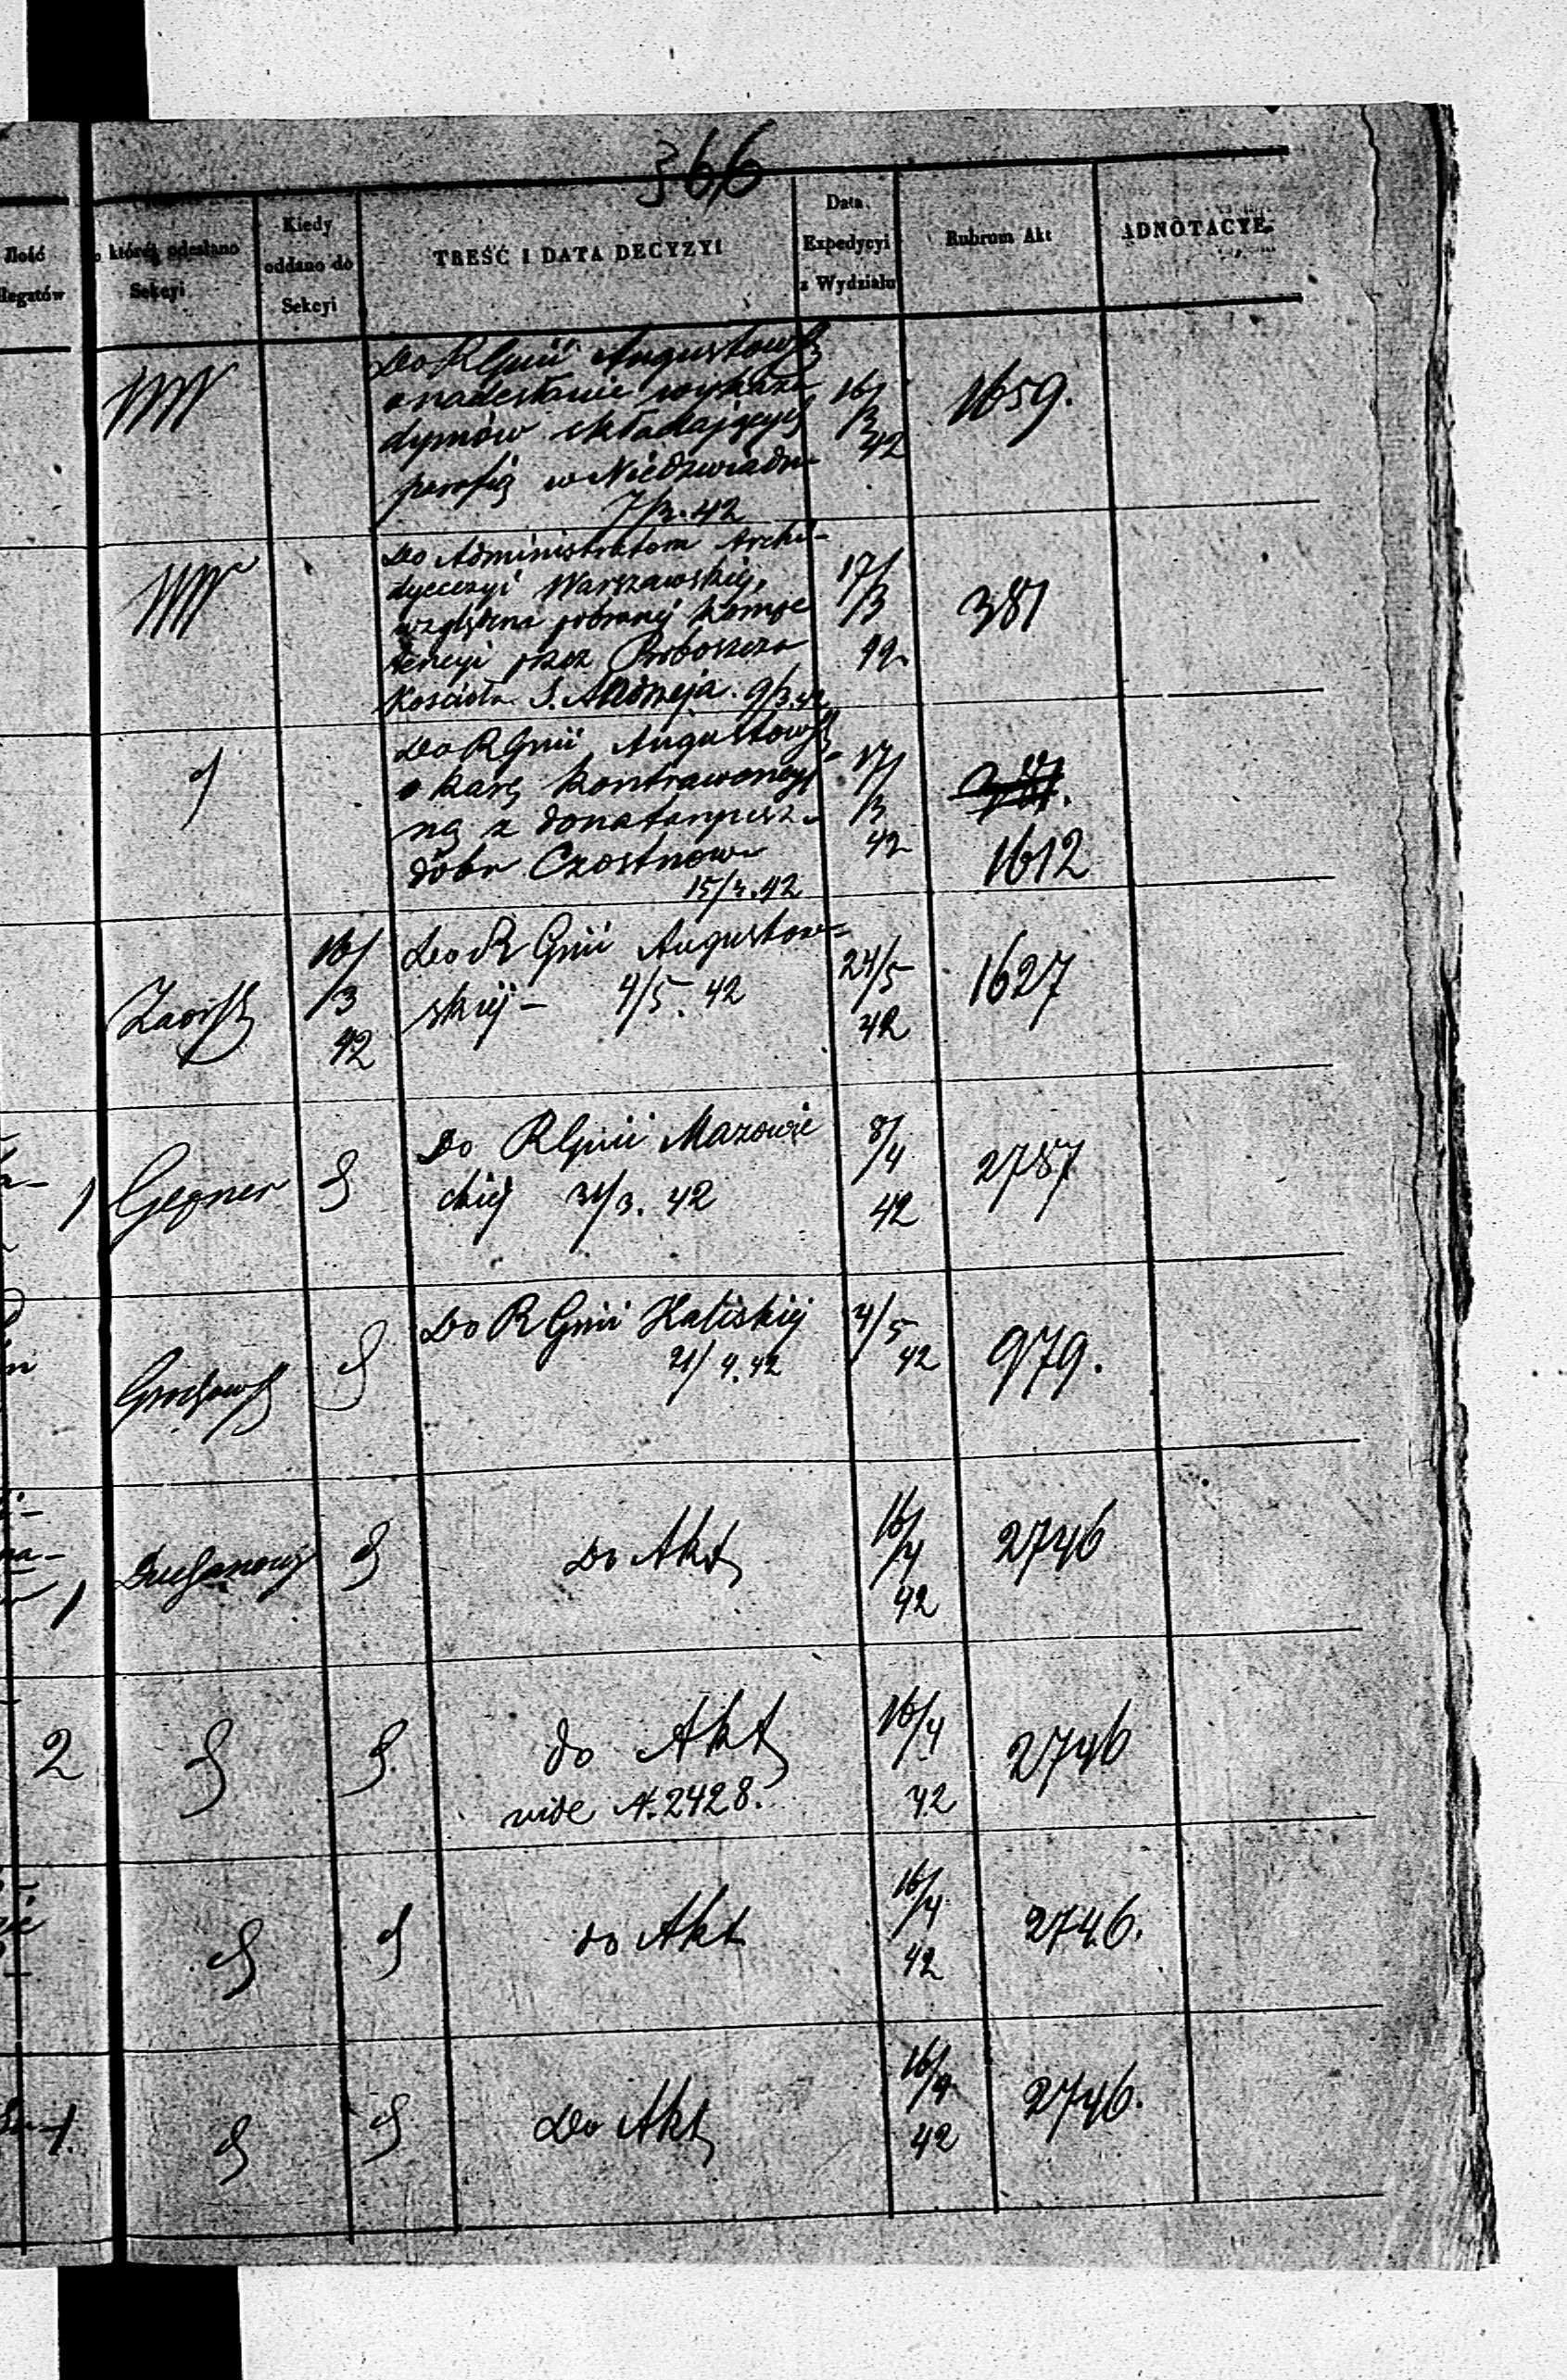 366
Ilość
legatów
o której odesłano
Sekcyi
Kiedy
oddano do
Sekcyi
TREŚĆ I DATA DECYZYI
Data
Expedycyi
z Wydziału
Rubrum Akt
ADNOTACYE.
Do RGnii Augustows
o nadesłanie wykazu
dymów składających
parafią w Niedzwiadn
7/3. 42
16/
3
42
1659.
Do Administratora Archi-
dyecezyi Warszawskiej,
względna pobranej kompe
tencyi przez Proboszcza
Kościoła S. Andrzeja. 9/3.42
17/
/3
42
381
Do RGnii Augustows
o karę kontrawency
ną z donataryusza
dóbr Czostnow
15/3.42
17/
/3
42
1612
16/
/3
42
Do R Gnii Augustow=
skiej - 4/5. 42
24/5
42
1627
1
Gepner
Do RGnii Mazowie
ckiej 31/3. 42
8/
/4
42
2787
Grochows
Do R Gnii Kaliskiej
21/4.42
4/5
42
979.
1
Do Akt
16/
/4
42
2746
2
do Akt
vide N. 2428.
16/4
42
2746
do Akt
16/4
42
2746.
1.
Do Akt
16/4
42
2746.